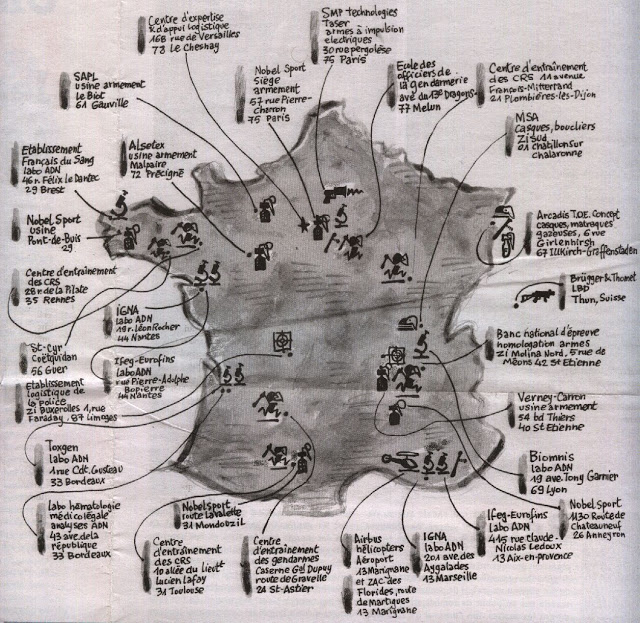 Centre d'expertise
& d'appui logistique
16B rue de Versailles
78 Le Chesnay
SMP technologies
Taser
armes à impulsion
electriques
30 rue pergolèse
75 Paris
SAPL
usine armement
le Biot
61 Gauville
Nobel Sport
Siège
armement
57 rue Pierre-
Charron
75 Paris
Ecole des
officiers de
la gendarmerie
ave du 13e Dragons
77 Melun
Centre d'entraînement
des CRS 11 avenue
François-Mitterrand
21 Plombières-les-Dijon
MSA
Casques, boucliers
Zi Sud
01 Chatillon sur
Chalaronne
Etablissement
Français du Sang
labo ADN
46 r. Félix le Dantec
29 Brest
Alsetex
usine armement
Malpaire
72 Précigné
Nobel Sport
usine
Pont-de-Buis
29
Arcadis T.O.E. Concept
casques, matraques
gazeuses, 6 rue
Girlenhirsh
67 Illkirch-Graffenstaden
Centre d'entraînement
des CRS
28 r de la Pilate
35 Rennes
Brügger & Thomet
LBD
Thun, Suisse
IGNA
labo ADN
19 r. Léon Rocher
44 Nantes
St-Cyr
Coëtquidan
56 Guer
Banc national d'épreuve
homologation armes
Zi Molina Nord, 5 rue de
Méons 42 St Etienne
Ifeg-Eurofins
labo ADN
rue Pierre-Adolphe
Bopierre
44 Nantes
Etablissement
logistique de
la police
Zi Buxerolles 1, rue
Faraday. 87 limoges
Verney-Carron
usine armement
54 bd Thiers
40 St Etienne
Toxgen
labo ADN
1 rue Cdt. Gusteau
33 Bordeaux
Biomnis
labo ADN
19 ave. Tony Garnier
69 Lyon
labo hématologie
médico légale
analyses ADN
43 ave. de la
république
33 Bordeaux
Nobel Sport
route Lavalette
31 Mondouzil
Centre
d'entraînement
des CRS
10 allée du Lieutt
Lucien Lafay
31 Toulouse
Centre
d'entrainement
des gendarmes
Caserne Gal Dupuy
route de Gravelle
24 St-Astier
Airbus
hélicoptères
Aéroport
13 Marignane
et ZAC des
Florides, route
de Martigues
13 Marignane
IGNA
labo ADN
201 ave. des
Aygalades
13 Marseille
Ifeg-Eurofins
labo ADN
415 rue Claude-
Nicolas Ledoux
13 Aix-en-provence
Nobel Sport
1130 Route de
Chateauneuf
26 Anneyron